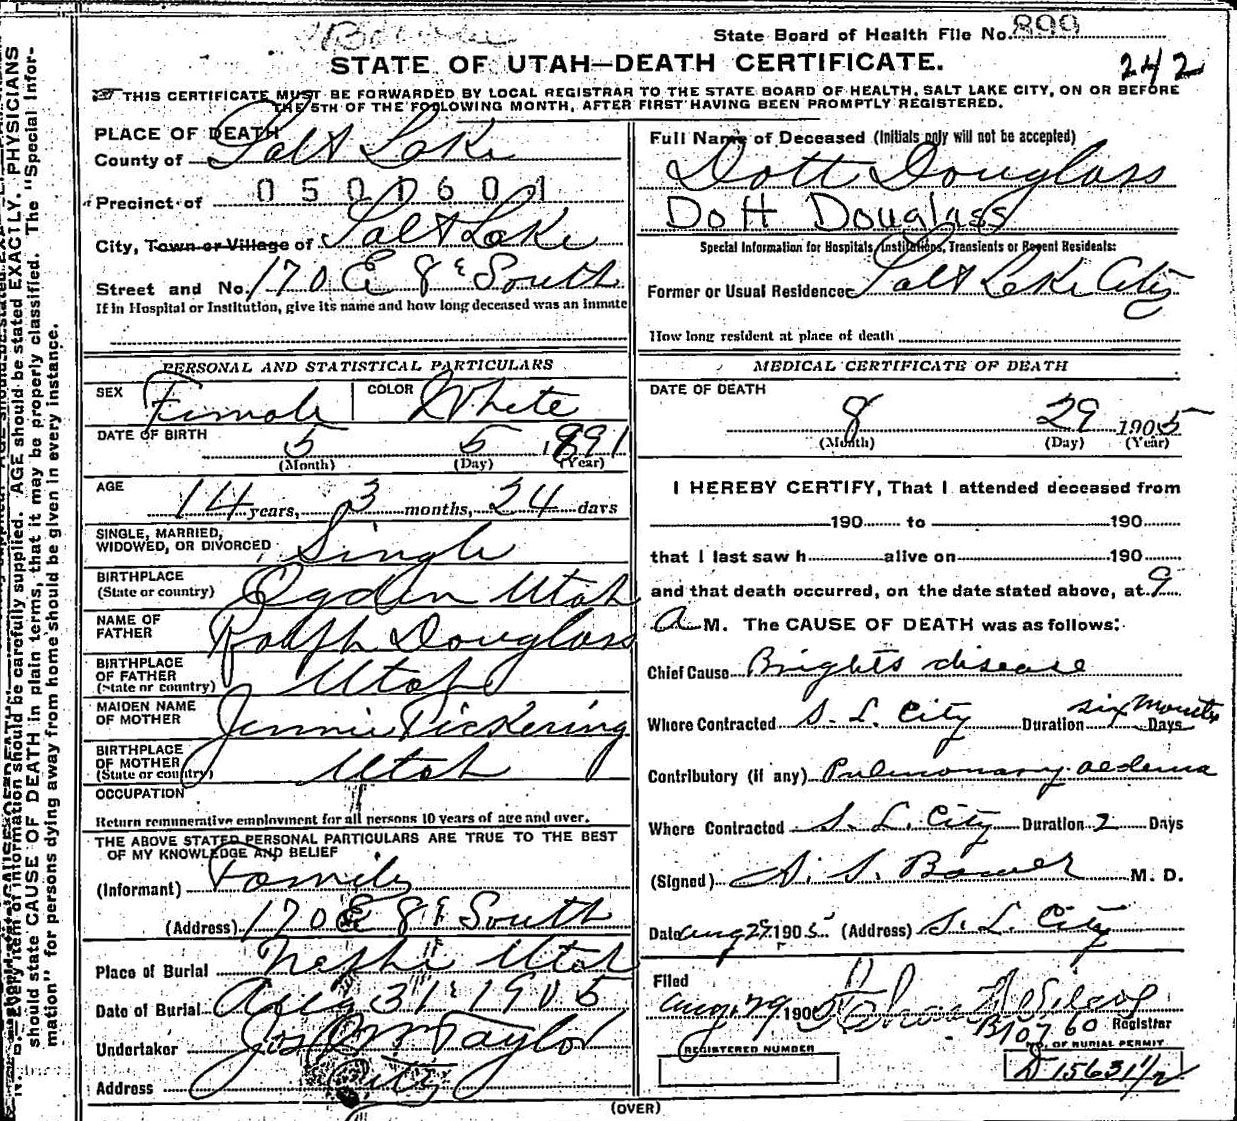 State Board of Health File No. 899
STATE OF UTAH—DEATH CERTIFICATE.
242
THIS CERTIFICATE MUST BE FORWARDED BY LOCAL REGISTRAR TO THE STATE BOARD OF HEALTH, SALT LAKE CITY, ON OR BEFORE
THE 5TH OF THE FOLLOWING MONTH, AFTER FIRST HAVING BEEN PROMPTLY REGISTERED.
PLACE OF DEATH
County of Salt Lake
Precinct of 0501601
City, Town or Village of Salt Lake
Street and No. 170 E 8th South
If in Hospital or Institution, give its name and how long deceased was an inmate
Full Name of Deceased (Initials only will not be accepted)
Dott Douglass
Dott Douglass
Special Information for Hospitals, Institutions, Transients or Recent Residents:
Former or Usual Residence Salt Lake City
How long resident at place of death
PERSONAL AND STATISTICAL PARTICULARS
SEX Female COLOR White
DATE OF BIRTH 5 5 1891
(Month) (Day) (Year)
AGE 14 years, 3 months, 24 days
SINGLE, MARRIED,
WIDOWED, OR DIVORCED Single
BIRTHPLACE
(State or country) Ogden Utah
NAME OF
FATHER Ralph Douglass
BIRTHPLACE
OF FATHER
(State or country) Utah
MAIDEN NAME
OF MOTHER Jennie Pickering
BIRTHPLACE
OF MOTHER
(State or country) Utah
OCCUPATION
Return remunerative employment for all persons 10 years of age and over.
THE ABOVE STATED PERSONAL PARTICULARS ARE TRUE TO THE BEST
OF MY KNOWLEDGE AND BELIEF
(Informant) Family
(Address) 170 E 8th South
Place of Burial Nephi Utah
Date of Burial Aug 31 1905
Undertaker Jos Wm Taylor
Address City
MEDICAL CERTIFICATE OF DEATH
DATE OF DEATH
8 29 1905
(Month) (Day) (Year)
I HEREBY CERTIFY, That I attended deceased from
190 to 190
that I last saw h alive on 190
and that death occurred, on the date stated above, at 9
A M. The CAUSE OF DEATH was as follows:
Chief Cause Brights disease
Where Contracted S. L. City Duration six Months Days
Contributory (if any) Pulmonary oedema
Where Contracted S. L. City Duration 2 Days
(Signed) M. D.
Date Aug 29 1905 (Address) S. L. City
Filed
Aug. 29 190
B10760 Registrar
REGISTERED NUMBER
NO. OF BURIAL PERMIT
D 15631 1/2
(OVER)
N. B.—Every item of information should be carefully supplied. AGE should be stated EXACTLY. PHYSICIANS
should state CAUSE OF DEATH in plain terms, that it may be properly classified. The "Special Infor-
mation" for persons dying away from home should be given in every instance.